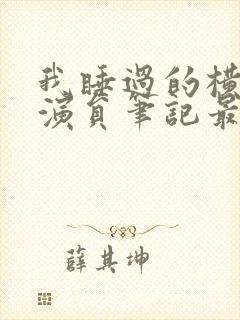 我睡過的橫
演員筆記最
薛其坤